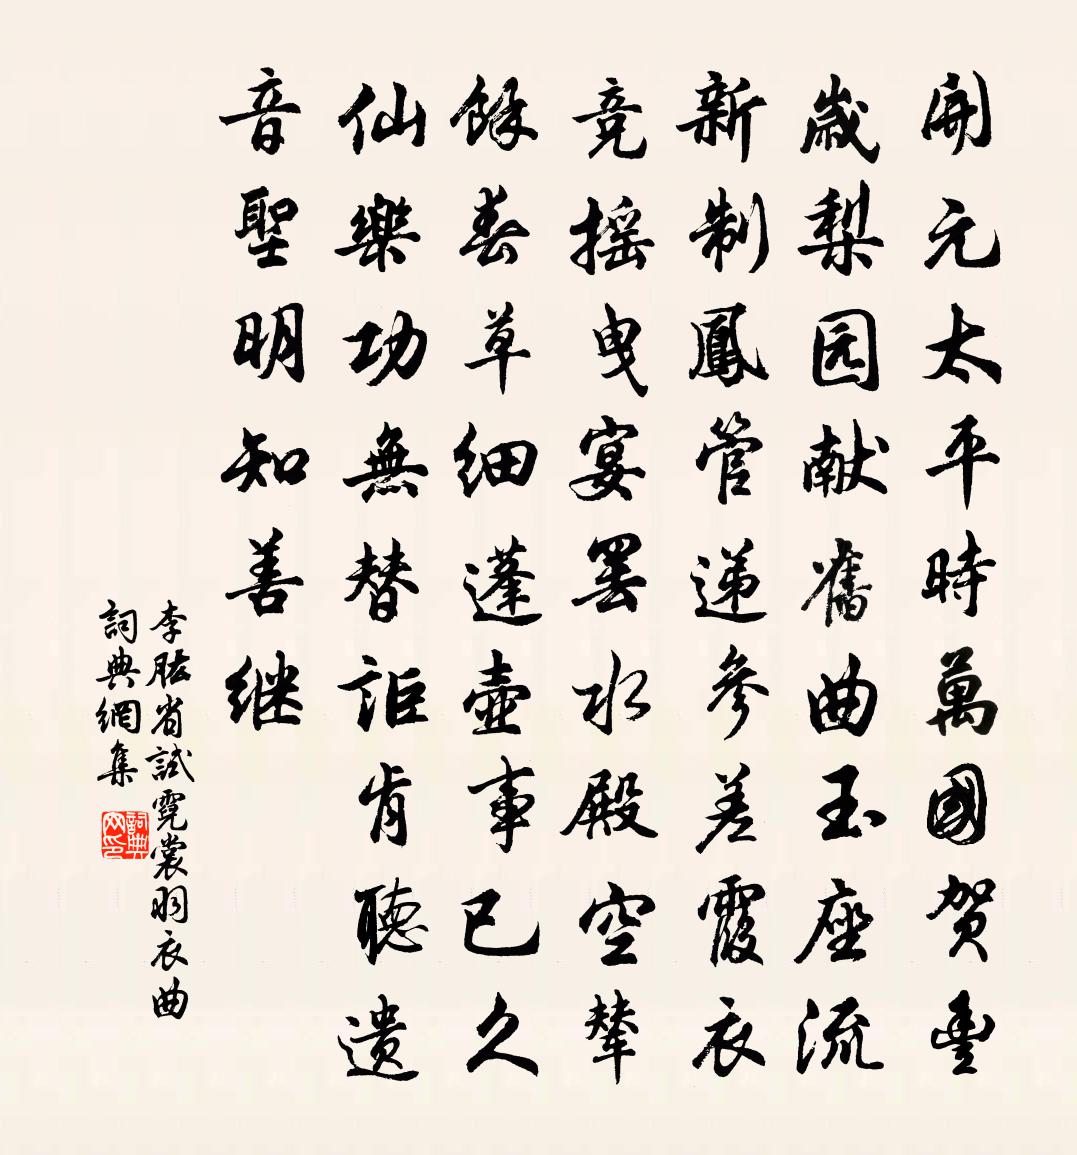 開元太平時萬國賀豐
歲梨园献舊曲玉座流
新制鳳管递參差霞衣
竞摇曳宴罢水殿空辇
餘春草细蓬壺事已久
仙樂功無替詎肯聽遗
音聖明知善继
李肱省試霓裳羽衣曲
詞典網集
詞典
网印